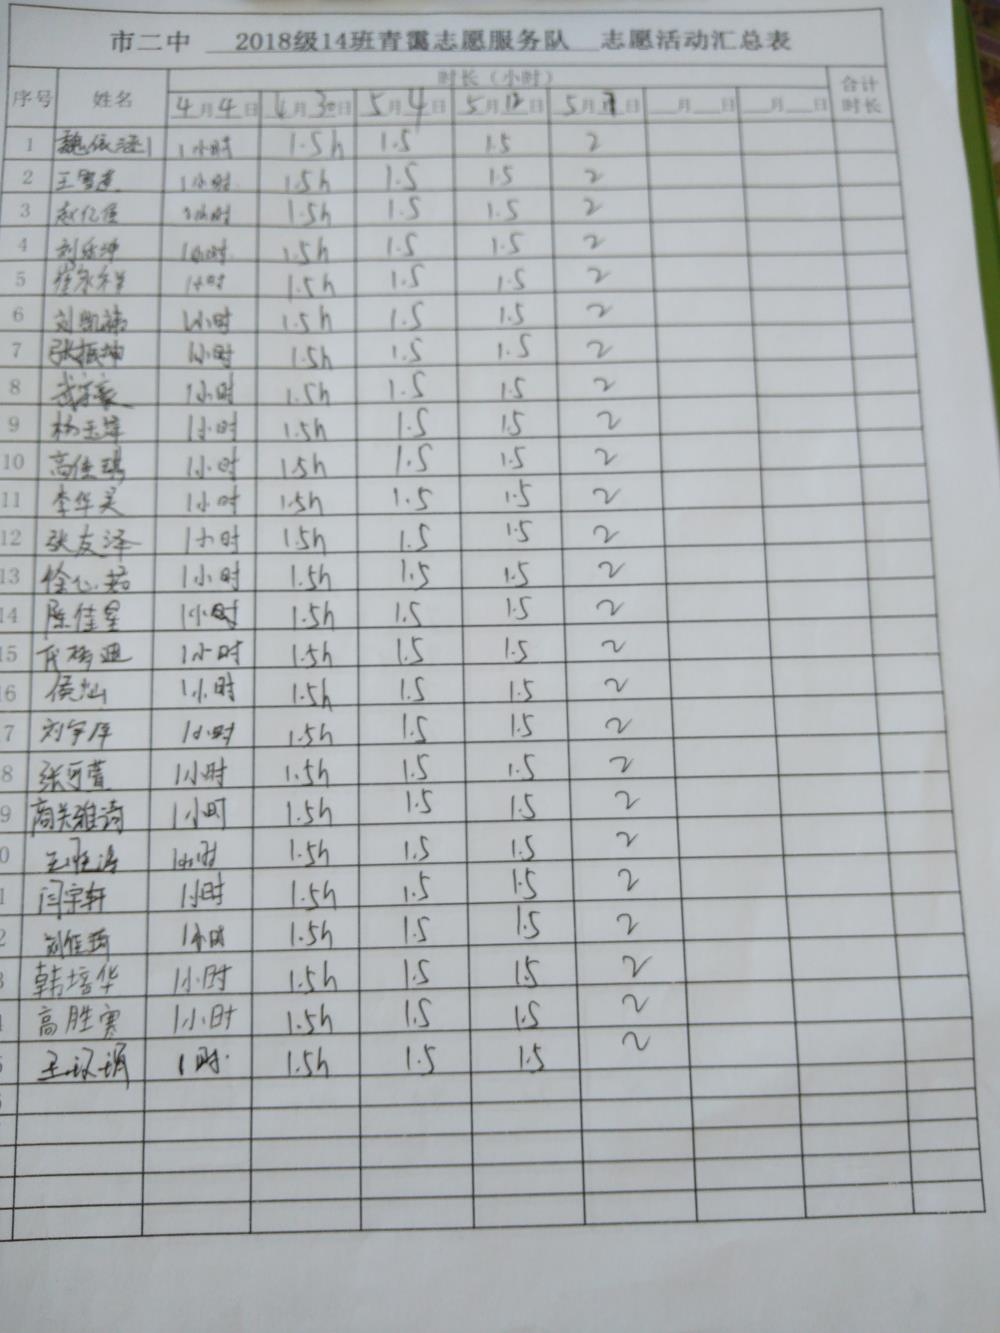 市二中 2018级14班青霭志愿服务队 志愿活动汇总表
序号 姓名 时长（小时） 合计时长
4月4日 4月30日 5月4日 5月12日 5月 日 月 日 月 日
1 魏依涵 1小时 1.5h 1.5 1.5 2
2 王 1小时 1.5h 1.5 1.5 2
3 赵亿 小时 1.5h 1.5 1.5 2
4 刘乐坤 1小时 1.5h 1.5 1.5 2
5 崔永祥 1小时 1.5h 1.5 1.5 2
6 刘凯 1小时 1.5h 1.5 1.5 2
7 张振坤 1小时 1.5h 1.5 1.5 2
8 武宗豪 1小时 1.5h 1.5 1.5 2
9 杨玉 1小时 1.5h 1.5 1.5 2
10 高佳琪 1小时 1.5h 1.5 1.5 2
11 李华昊 1小时 1.5h 1.5 1.5 2
12 张友泽 1小时 1.5h 1.5 1.5 2
13 徐心茹 1小时 1.5h 1.5 1.5 2
14 陈佳星 1小时 1.5h 1.5 1.5 2
15 代梦迪 1小时 1.5h 1.5 1.5 2
6 侯灿 1小时 1.5h 1.5 1.5 2
7 刘宇 1小时 1.5h 1.5 1.5 2
8 张可萱 1小时 1.5h 1.5 1.5 2
9 商关雅诗 1小时 1.5h 1.5 1.5 2
0 王 1小时 1.5h 1.5 1.5 2
1 闫宗轩 1小时 1.5h 1.5 1.5 2
2 刘佳 1小时 1.5h 1.5 1.5 2
3 韩培华 1小时 1.5h 1.5 1.5 2
高胜寒 1小时 1.5h 1.5 1.5 2
王 1时 1.5h 1.5 1.5 2